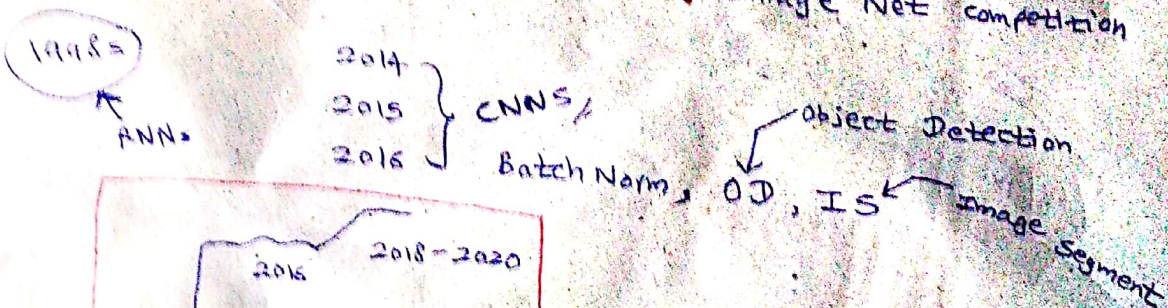 Net competition
2014
2015
2016
CNNs,
Batch Norm, OD, IS
Object Detection
Image Segment
2016
2018-2020